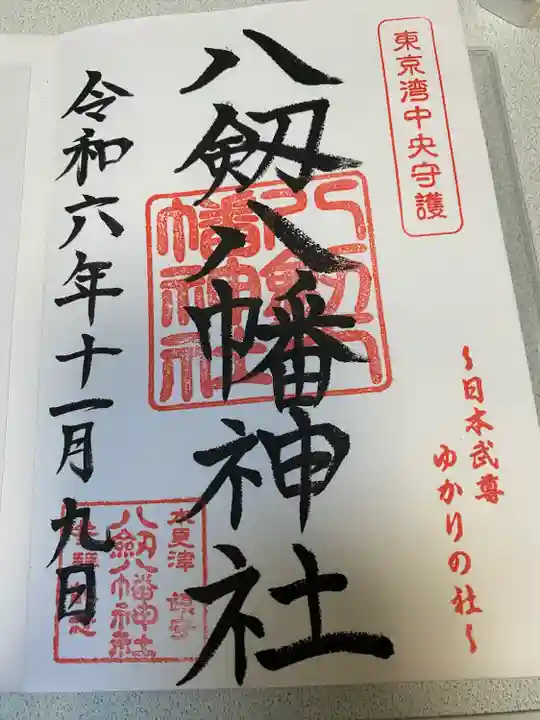 東京湾中央守護
~日本武尊
ゆかりの社~
八剱八幡神社
八剱八
幡神社
令和六年十一月九日
木更津 鎮守
八剱八幡神社